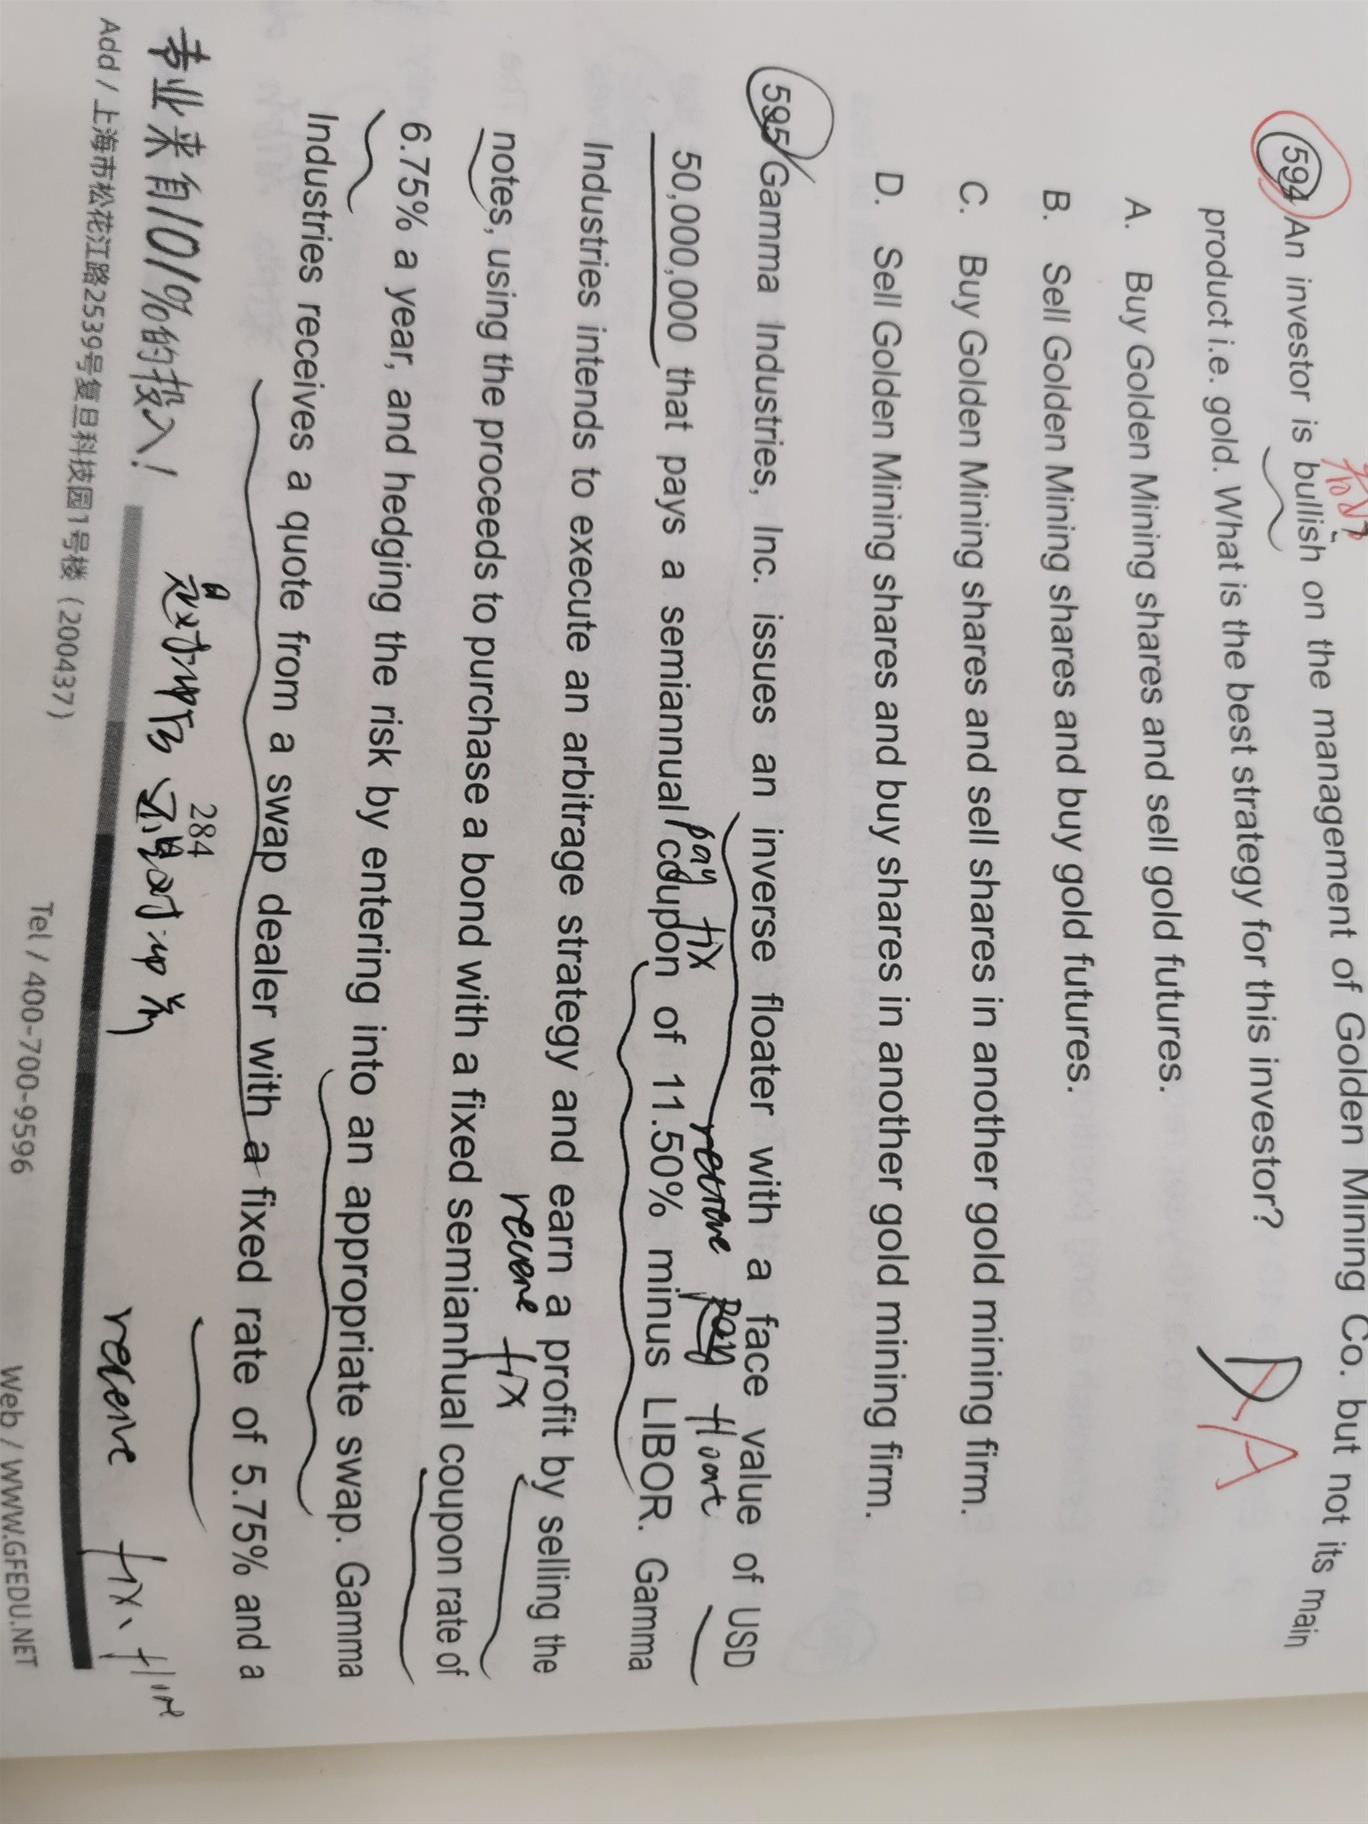 看好
594 An investor is bullish on the management of Golden Mining Co. but not its main
product i.e. gold. What is the best strategy for this investor?
D A
A. Buy Golden Mining shares and sell gold futures.
B. Sell Golden Mining shares and buy gold futures.
C. Buy Golden Mining shares and sell shares in another gold mining firm.
D. Sell Golden Mining shares and buy shares in another gold mining firm.
595 Gamma Industries, Inc. issues an inverse floater with a face value of USD
pay fix pay float
50,000,000 that pays a semiannual coupon of 11.50% minus LIBOR. Gamma
Industries intends to execute an arbitrage strategy and earn a profit by selling the
fix
notes, using the proceeds to purchase a bond with a fixed semiannual coupon rate of
6.75% a year, and hedging the risk by entering into an appropriate swap. Gamma
Industries receives a quote from a swap dealer with a fixed rate of 5.75% and a
284
receive fix
专业来自101%的投入!
Add / 上海市松花江路2539号复旦科技园1号楼 (200437) Tel / 400-700-9596 Web / WWW.GFEDU.NET